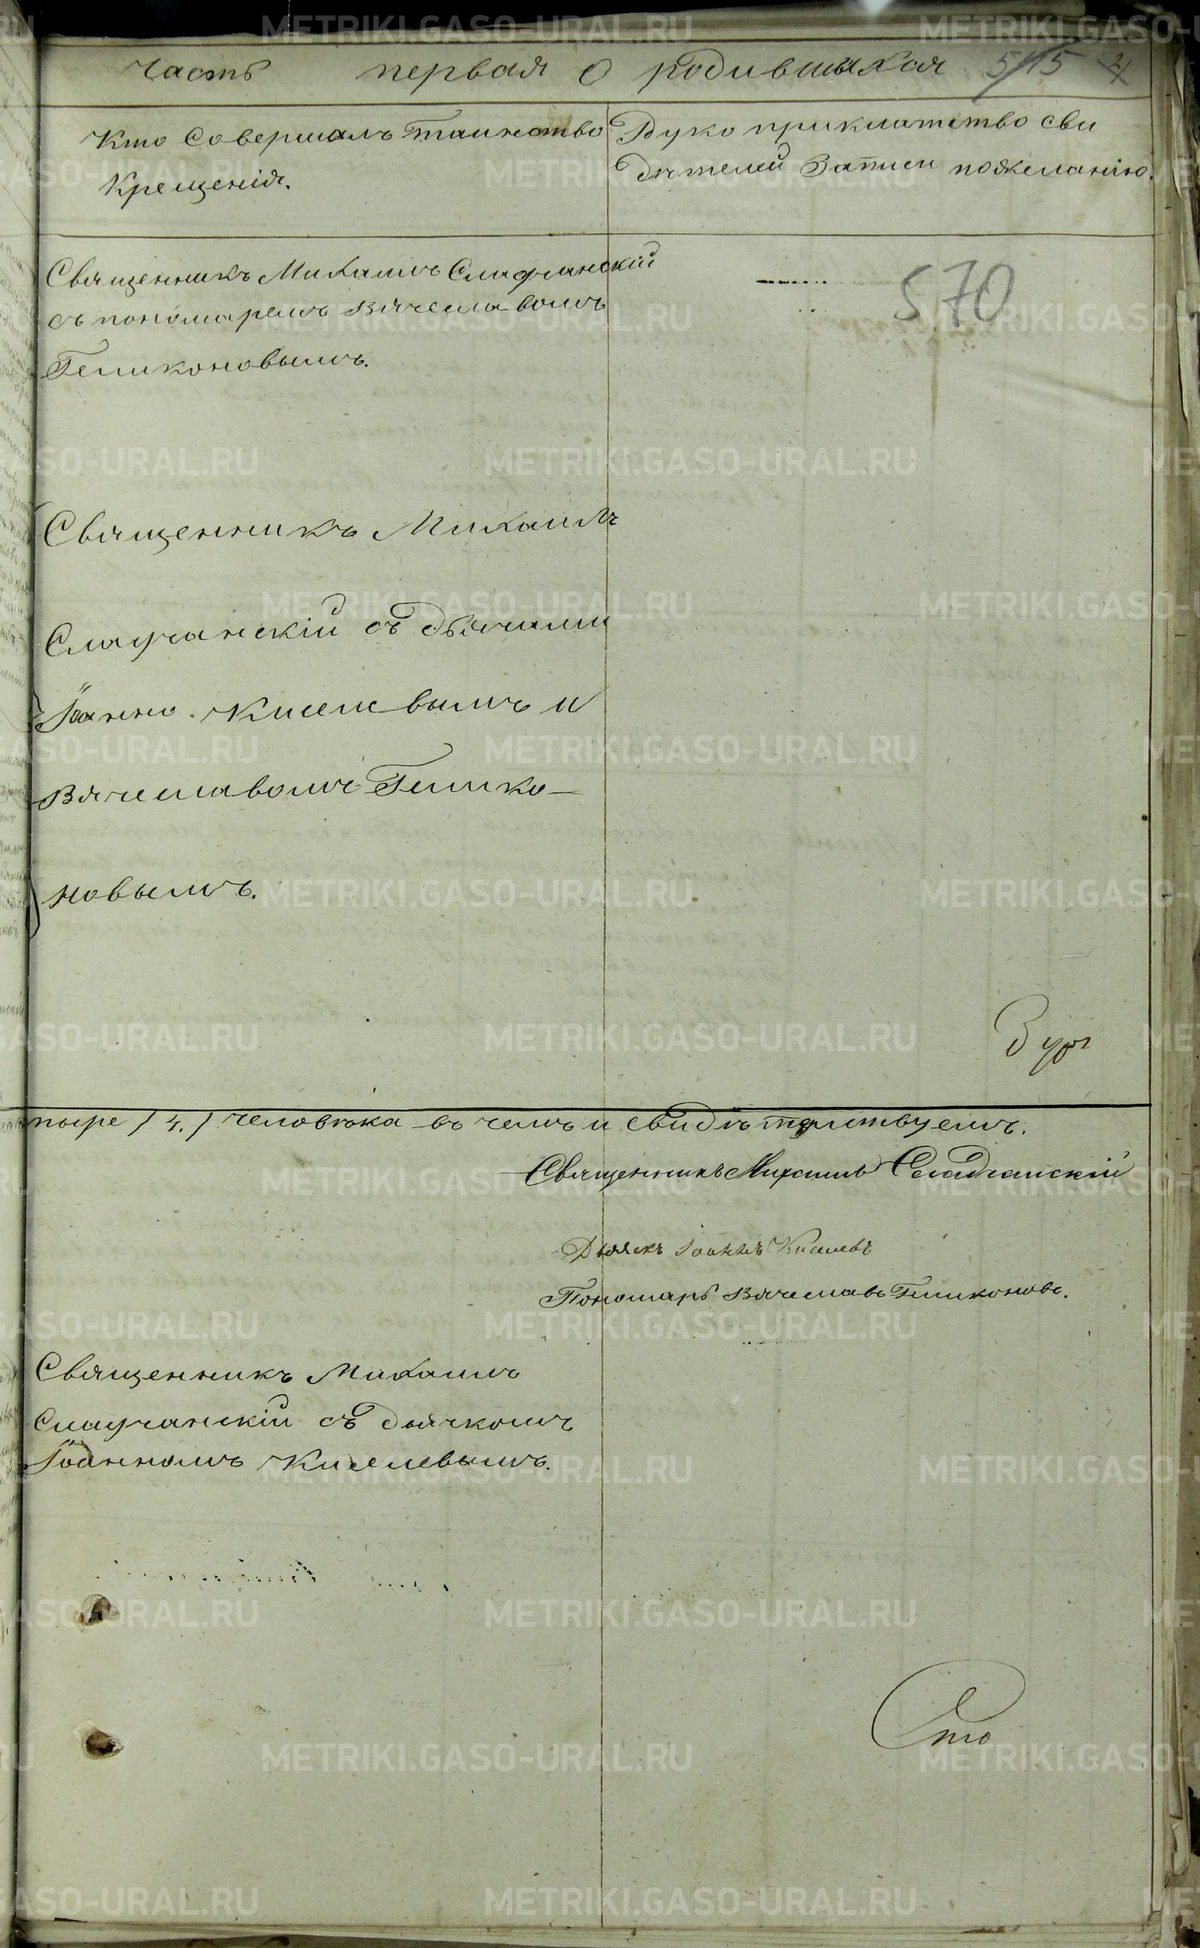 Часть первая о родившыхся 515
Кто Совершалъ Таинство
Крещенія.
Руко приклатство сви
дѣтелей Записи пожеланію.
Священникъ Михаилъ Слафчанскій
съ пономаремъ Вячеславомъ
Геликоновымъ.
570
Священникъ Михаилъ
Слафчанскій съ дьячками
Іоанно Киселевымъ и
Вячеславомъ Гелико-
новымъ.
тыре / 4. / человѣка въ чемъ и свидѣтельствуемъ.
Священникъ Михаилъ
Дьячекъ Іоаннъ Киселевъ
Пономарь Вячеславъ Геликоновъ.
Священникъ Михаилъ
Слафчанскій съ дьячкомъ
Іоанномъ Киселевымъ.
METRIKI.GASO-URAL.RU